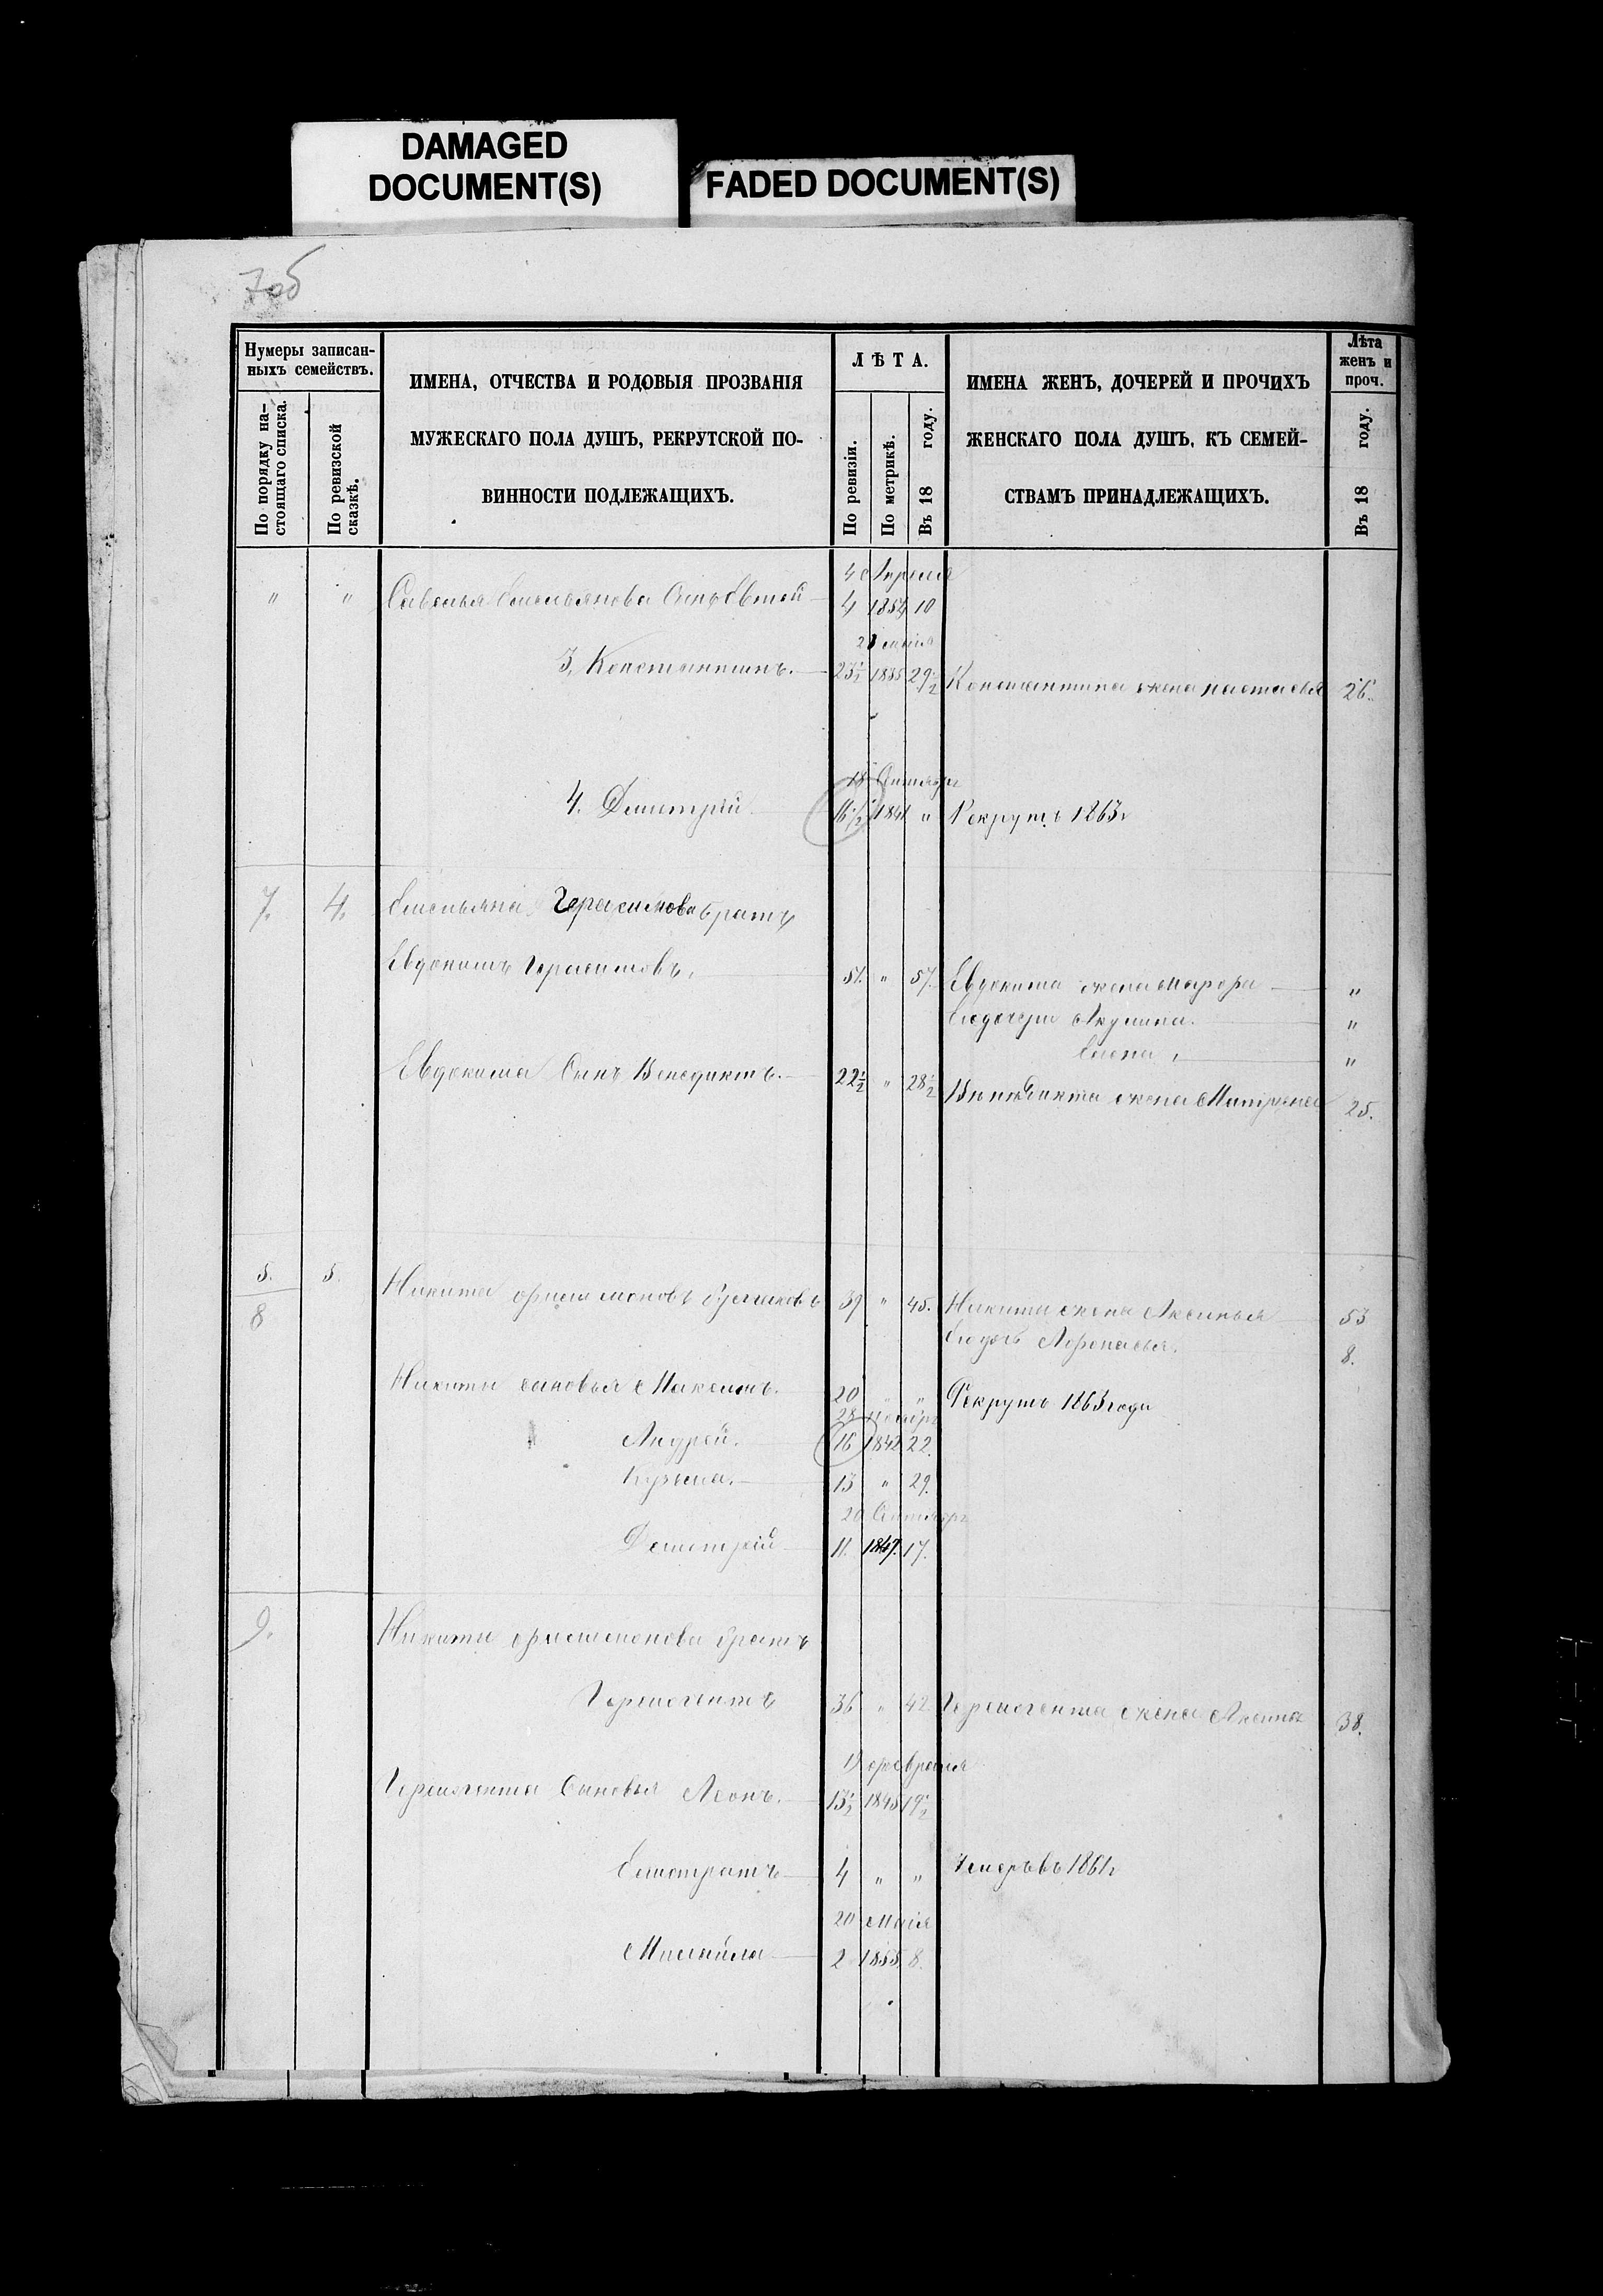 DAMAGED
DOCUMENT(S)
FADED DOCUMENT(S)
7об
Нумеры записан-
ныхъ семействъ.
По порядку на-
стоящаго списка.
По ревизской
сказкѣ.
ИМЕНА, ОТЧЕСТВА И РОДОВЫЯ ПРОЗВАНІЯ
МУЖЕСКАГО ПОЛА ДУШЪ, РЕКРУТСКОЙ ПО-
ВИННОСТИ ПОДЛЕЖАЩИХЪ.
ЛѢТА.
По ревизіи.
По метрикѣ.
Въ 18 году.
ИМЕНА ЖЕНЪ, ДОЧЕРЕЙ И ПРОЧИХЪ
ЖЕНСКАГО ПОЛА ДУШЪ, КЪ СЕМЕЙ-
СТВАМЪ ПРИНАДЛЕЖАЩИХЪ.
Лѣта
женъ и
проч.
Въ 18 году.
Апреля
" " Савелья Емельянова Сынъ 4 1854 10
21 маія
3. Константинъ. 23½ 1835 29½ Константина жена Настасья 26.
18 Октября
4. Дмитрій 16½ 1841 " Рекрутъ 1863г
7. 4. Емельяна Герасимова братъ
Евдокимъ Герасимовъ. 51. " 57. Евдокима жена Марфа "
Его дочери Акулина. "
Елена "
Евдокима Сынъ Венедиктъ. 22½ " 28½ Венедикта жена Матрена 25.
5. 5.
8 Никита Филимоновъ 39 " 45. Никиты жена Аксинья 53
Его дочь Афонасья. 8.
Никиты сыновья Максимъ. 20 " " Рекрутъ 1863 года
28 ноября
Андрей. 16 1842 22.
Кузьма. 13 " 29.
20 Октября
Дмитрій 11. 1847. 17.
9. Никиты Филимонова братъ
36 " 42 жена 38.
февраля
Сыновья Леонъ. 13½ 1845 19½
4 " " Умеръ въ 1861г
20 Маія
Михайла 2 1855 8.